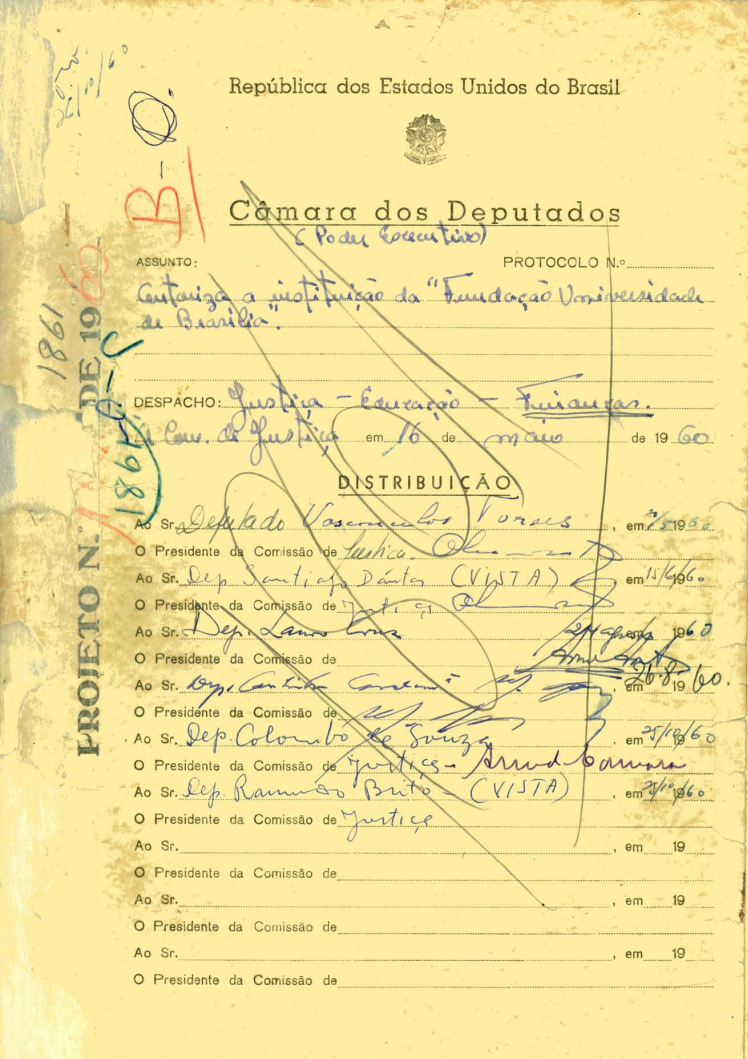 26/10/60
B-O
República dos Estados Unidos do Brasil
Câmara dos Deputados
(Poder Executivo)
ASSUNTO:
PROTOCOLO N.º
Autoriza a instituição da "Fundação Universidade
de Brasília".
DESPACHO: Justiça - Educação - Finanças.
À Com. de Justiça em 16 de maio de 1960
DISTRIBUIÇÃO
Ao Sr. Deputado Vasconcelos Torres, em /5 1960
O Presidente da Comissão de Justiça
Ao Sr. Dep. Santiago Dantas (VISTA) em 15/6/1960
O Presidente da Comissão de Justiça
Ao Sr. Dep. 1960
O Presidente da Comissão de
Ao Sr. Dep. , em 26.8.1960.
O Presidente da Comissão de
Ao Sr. Dep. Colombo de Souza, em 25/10/1960
O Presidente da Comissão de Justiça -
Ao Sr. Dep. Raimundo Brito - (VISTA), em 25/10/1960
O Presidente da Comissão de Justiça
Ao Sr. , em 19
O Presidente da Comissão de
Ao Sr. , em 19
O Presidente da Comissão de
Ao Sr. , em 19
O Presidente da Comissão de
PROJETO N.º DE 1960
1861
1861-A-C